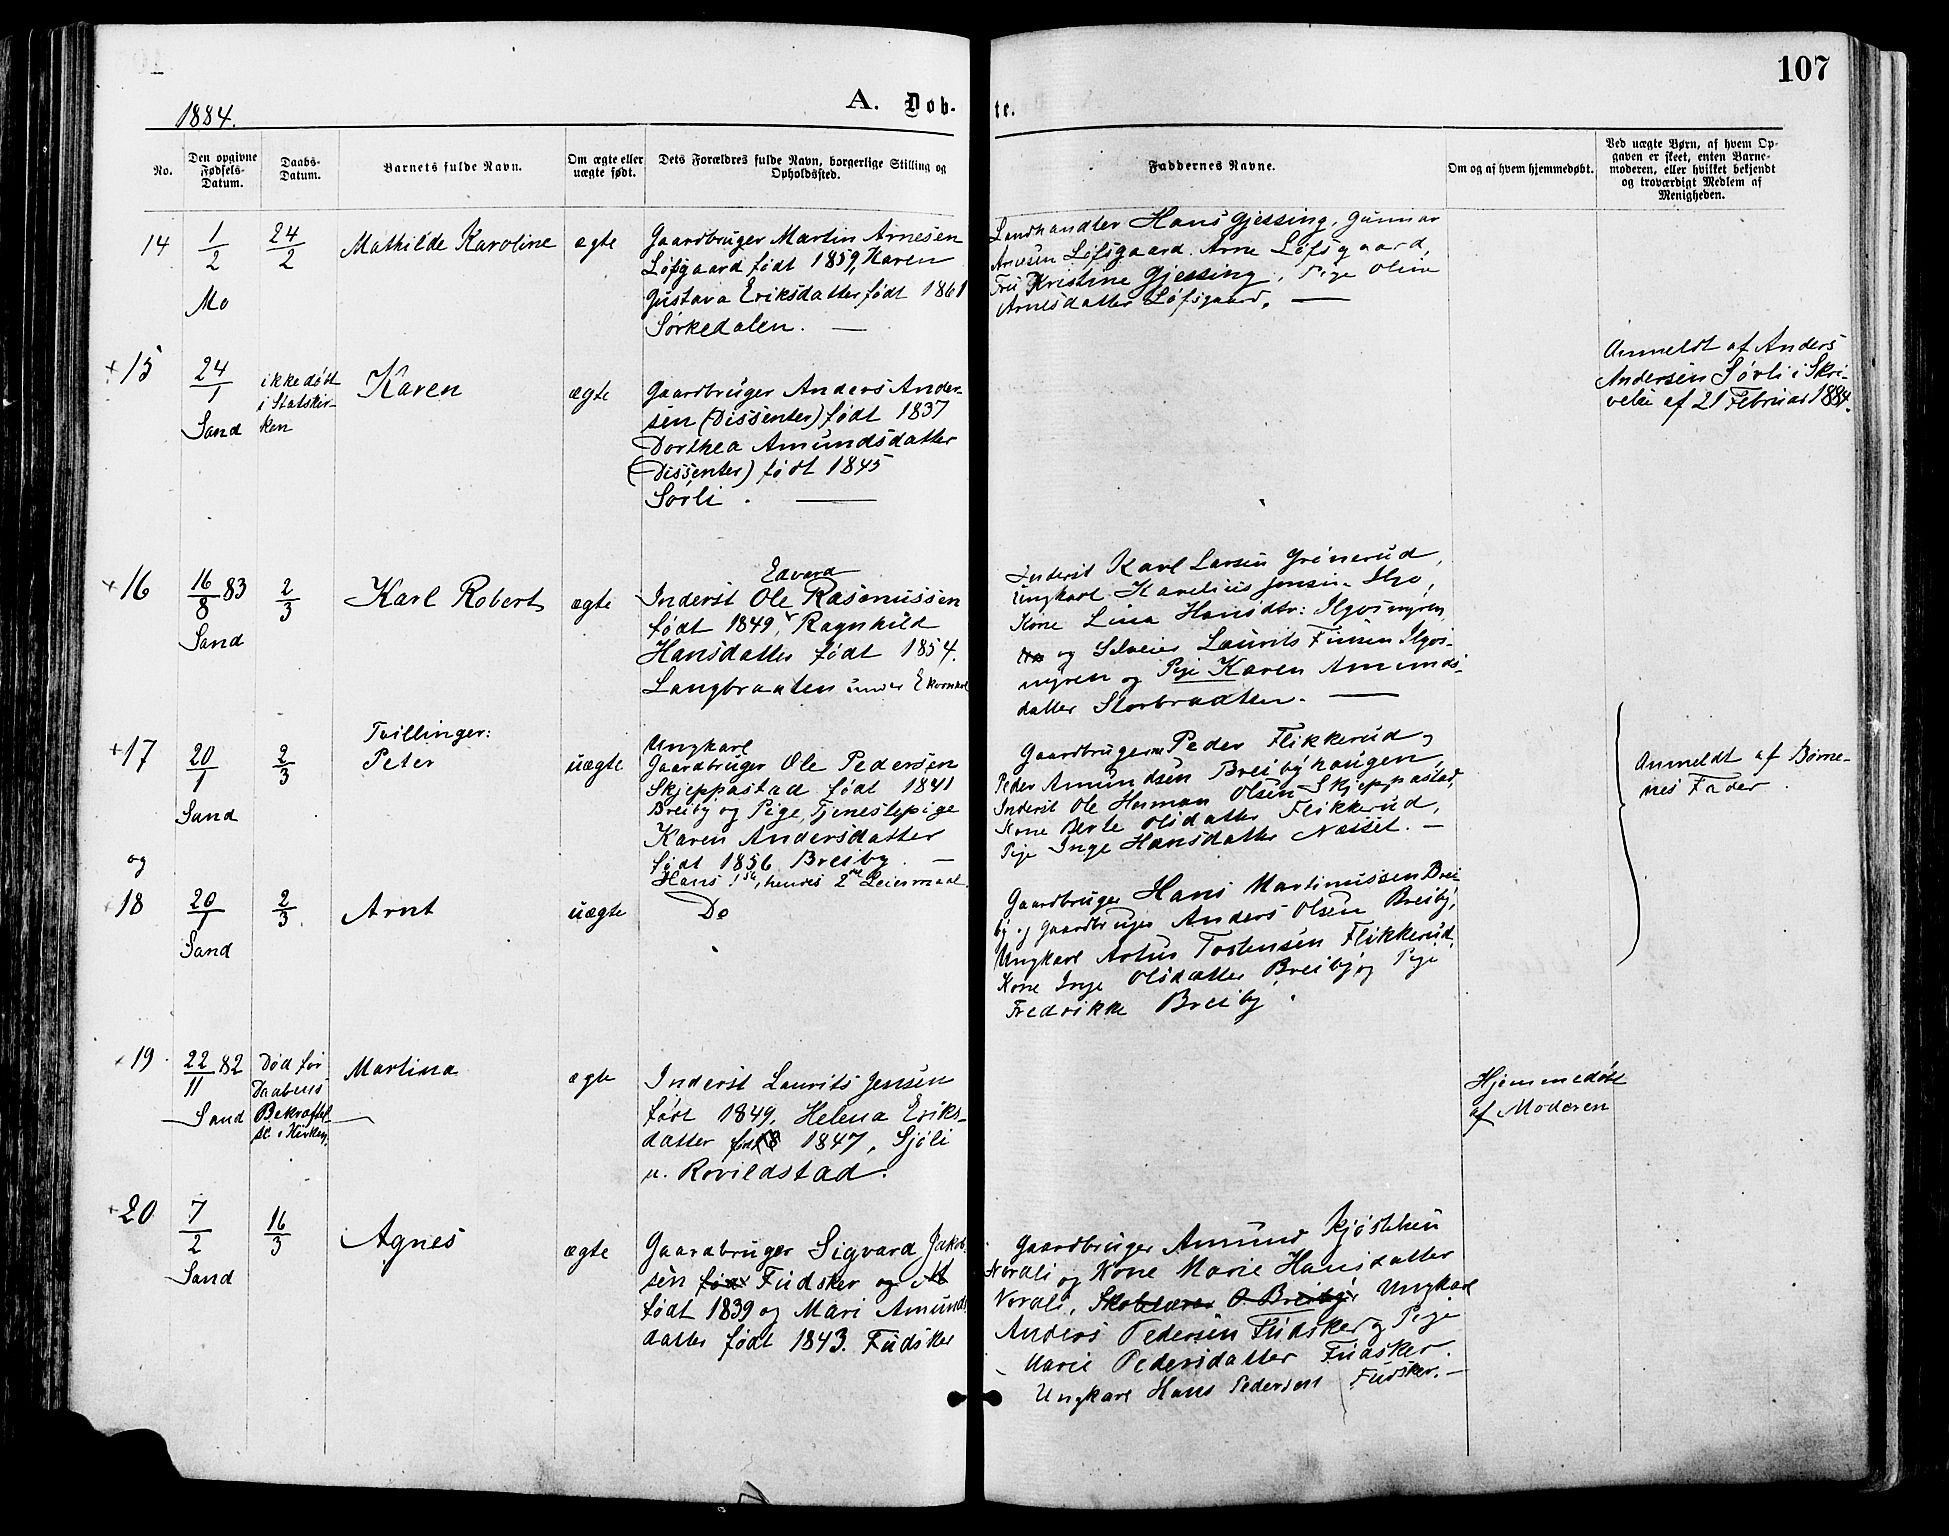 107
1884.
A. Døb-
te.
No.
Den opgivne
Fødsels-
Datum.
Daabs-
Datum.
Barnets fulde Navn.
Om ægte eller
uægte født.
Dets Forældres fulde Navn, borgerlige Stilling og
Opholdssted.
Faddernes Navne.
Om og af hvem hjemmedøbt.
Ved uægte Børn, af hvem Op-
gaven er skeet, enten Barne-
moderen, eller hvilket bekjendt
og troværdigt Medlem af
Menigheden.
14
1/2
Mo
24/2
Mathilde Karoline
ægte
Gaardbruger Martin Arnesen
Løfsgaard født 1859, Karen
Gustava Eriksdatter født 1861
Sørkedalen. —
Landhandler Hans Gjessing, Gunnar
Arnesen Løfsgaard, Arne Løfsgaard,
Fru Kristine Gjessing, Pige Oline
Arnesdatter Løfsgaard. —
+15
24/1
Sand
ikke døbt
i Statskir-
ken
Karen
ægte
Gaardbruger Anders Ander-
sen (Dissenter) født 1837
Dorthea Amundsdatter
(Dissenter) født 1845
Sørli. —
Anmeldt af Anders
Andersen Sørli i Skri-
velse af 21 Februar 1884.
+16
16/8 83
Sand
2/3
Karl Robert
ægte
Edvard
Inderst Ole Rasmussen
født 1849, Ragnhild
Hansdatter født 1854.
Langbraaten under
Inderst Karl Larsen Grinerud,
Ungkarl Karelius Jensen
Kone Lina Hansdtr: Ilgosmyren,
og Selveier Laurits Finsen Ilgos-
myren og Pige Karen Amunds-
datter Storbraadten. —
+17
20/1
Sand
2/3
Tvillinger:
Peter
uægte
Ungkarl
Gaardbruger Ole Pedersen
Skjeppastad født 1841
Breiby og Pige, Tjenestepige
Karen Andersdatter
født 1856 Breiby. —
Hans 1ste, hendes 2det Leiermaal.
Gaardbrugerne Peder Flikkerud og
Peder Amundsen Breibyhaugen,
Inderst Ole Herman Olsen Skjeppastad,
Kone Berte Olsdatter Flikkerud,
Pige Inge Hansdatter Næsset. —
Anmeldt af Børne-
nes Fader.
og
18
20/1
Sand
2/3.
Arnt
uægte
Do
Gaardbruger Hans Martinussen Brei-
by og Gaardbruger Anders Olsen Breiby,
Ungkarl Tostensen Flikkerud,
Kone Inge Olsdatter Breiby og Pige
Fredrikke Breiby.
19
22/11 82
Sand
Død før
Daabens
Bekræftel-
se i Kirken,
Martina
ægte
Inderst Laurits Jensen
født 1849, Helena Eriks-
datter født 1847, Sjøli
u. Rovildstad.
Hjemmedøbt
af Moderen
+20
7/2
Sand
16/3
Agnes
ægte
Gaardbruger Sigvard Jakob-
sen født Fudsker og M
født 1839 og Mari Amunds-
datter født 1843. Fudsker
Gaardbruger Amund Kjøstelsen
Nordli og Kone Marie Hansdatter
Nordli, Skolelærer O. Breiby Ungkarl
Anders Pedersen Fudsker og Pige
Marie Pedersdatter Fudsker.
Ungkarl Hans Pedersen Fudsker. —